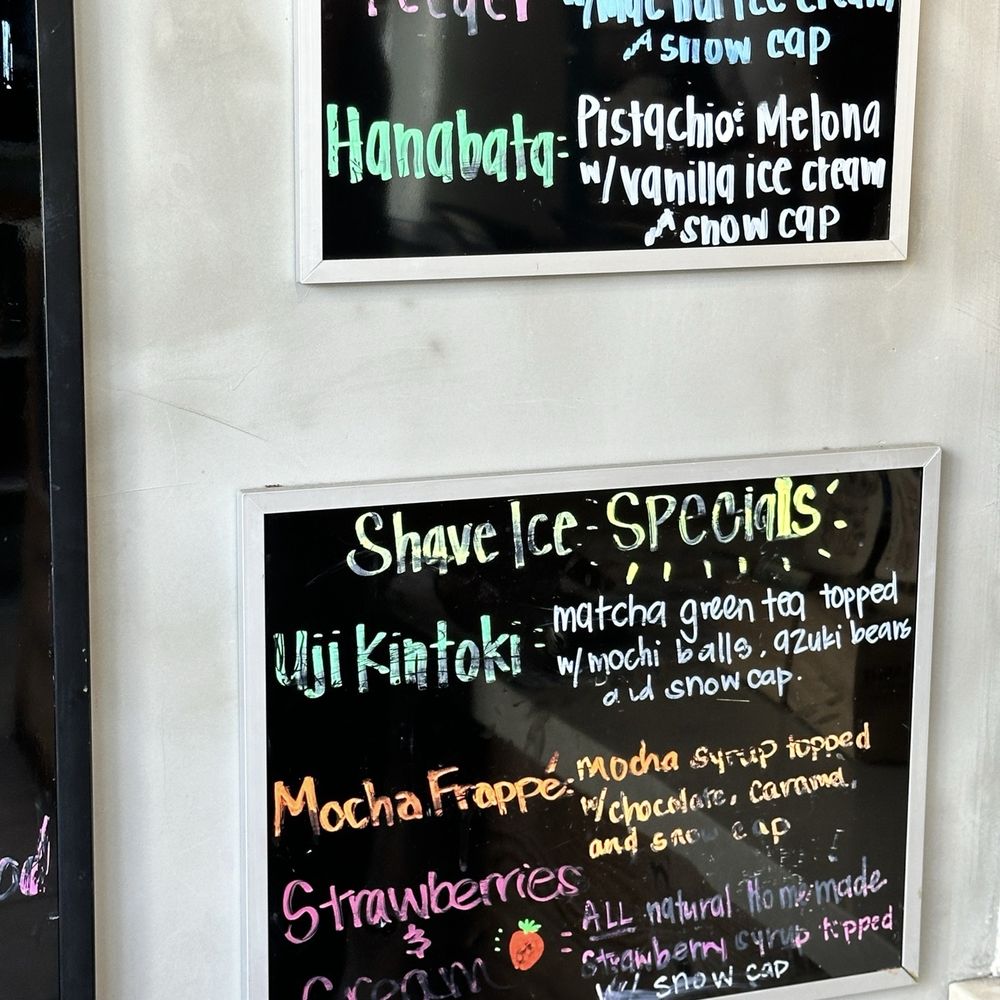 Feeder w/mac nut ice cream
& snow cap
Hanabata = Pistachio & Melona
w/vanilla ice cream
& snow cap
Shave Ice Specials
Uji Kintoki = matcha green tea topped
w/mochi balls, azuki beans
and snow cap.
Mocha Frappé = Mocha syrup topped
w/chocolate, caramel,
and snow cap
Strawberries
&
Cream = ALL natural Homemade
strawberry syrup topped
w/ snow cap